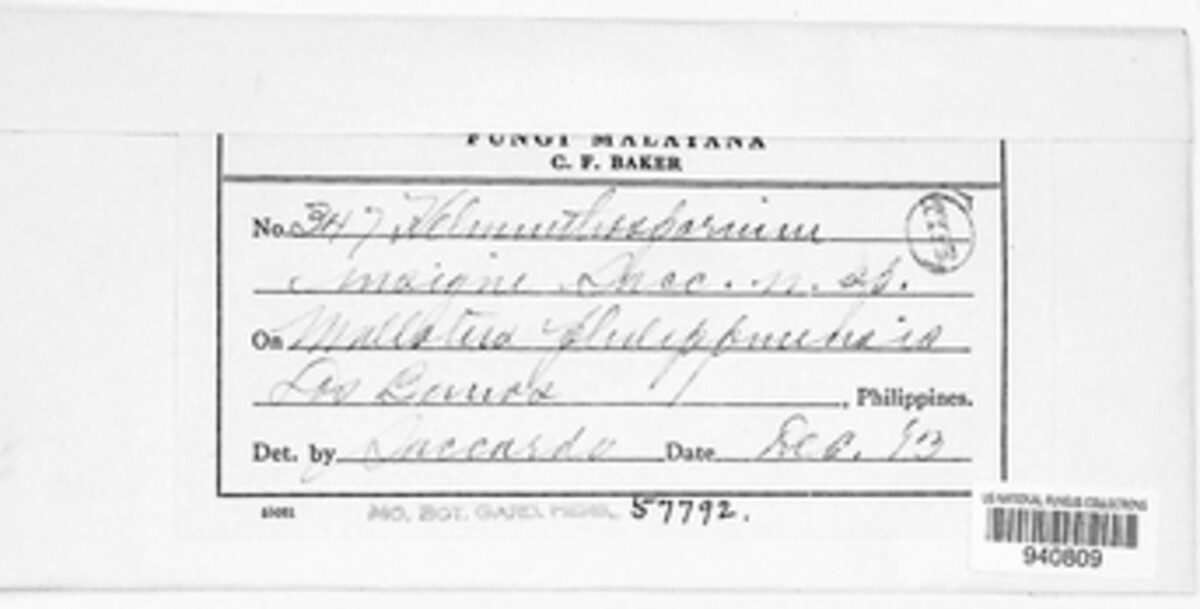 FUNGI MALAYANA
C. F. BAKER
No. 347 Helminthosporium
insigne Sacc. n. sp.
On Mallotus philippinensis
Los Banos, Philippines.
Det. by Saccardo Date Dec. '13
MO. BOT. GARD. HERB. 57792.
US NATIONAL FUNGUS COLLECTIONS
940809